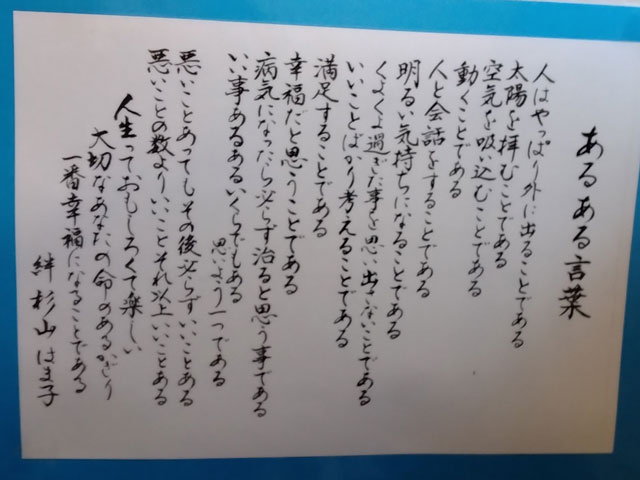 ある ある 言葉
人はやっぱり外に出ることである
太陽を拝むことである
空気を吸い込むことである
動くことである
人と会話をすることである
明るい気持ちになることである
くよくよ過ぎた事を思い出さないことである
いいことばかり考えることである
満足することである
幸福だと思うことである
病気になったら必らず治ると思う事である
いい事あるあるいくらでもある
思いよう一つである
悪いことあってもその後必らずいいことある
悪いことの数よりいいことそれ以上いいことある
人生っておもしろくて楽しい
大切なあなたの命のあるかぎり
一番幸福になることである
絆 杉山 はま子